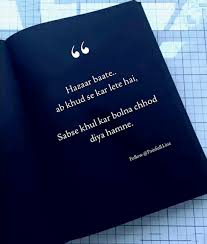 “
Hazaar baate..
ab khud se kar lete hai,
Sabse khul kar bolna chhod
diya hamne.